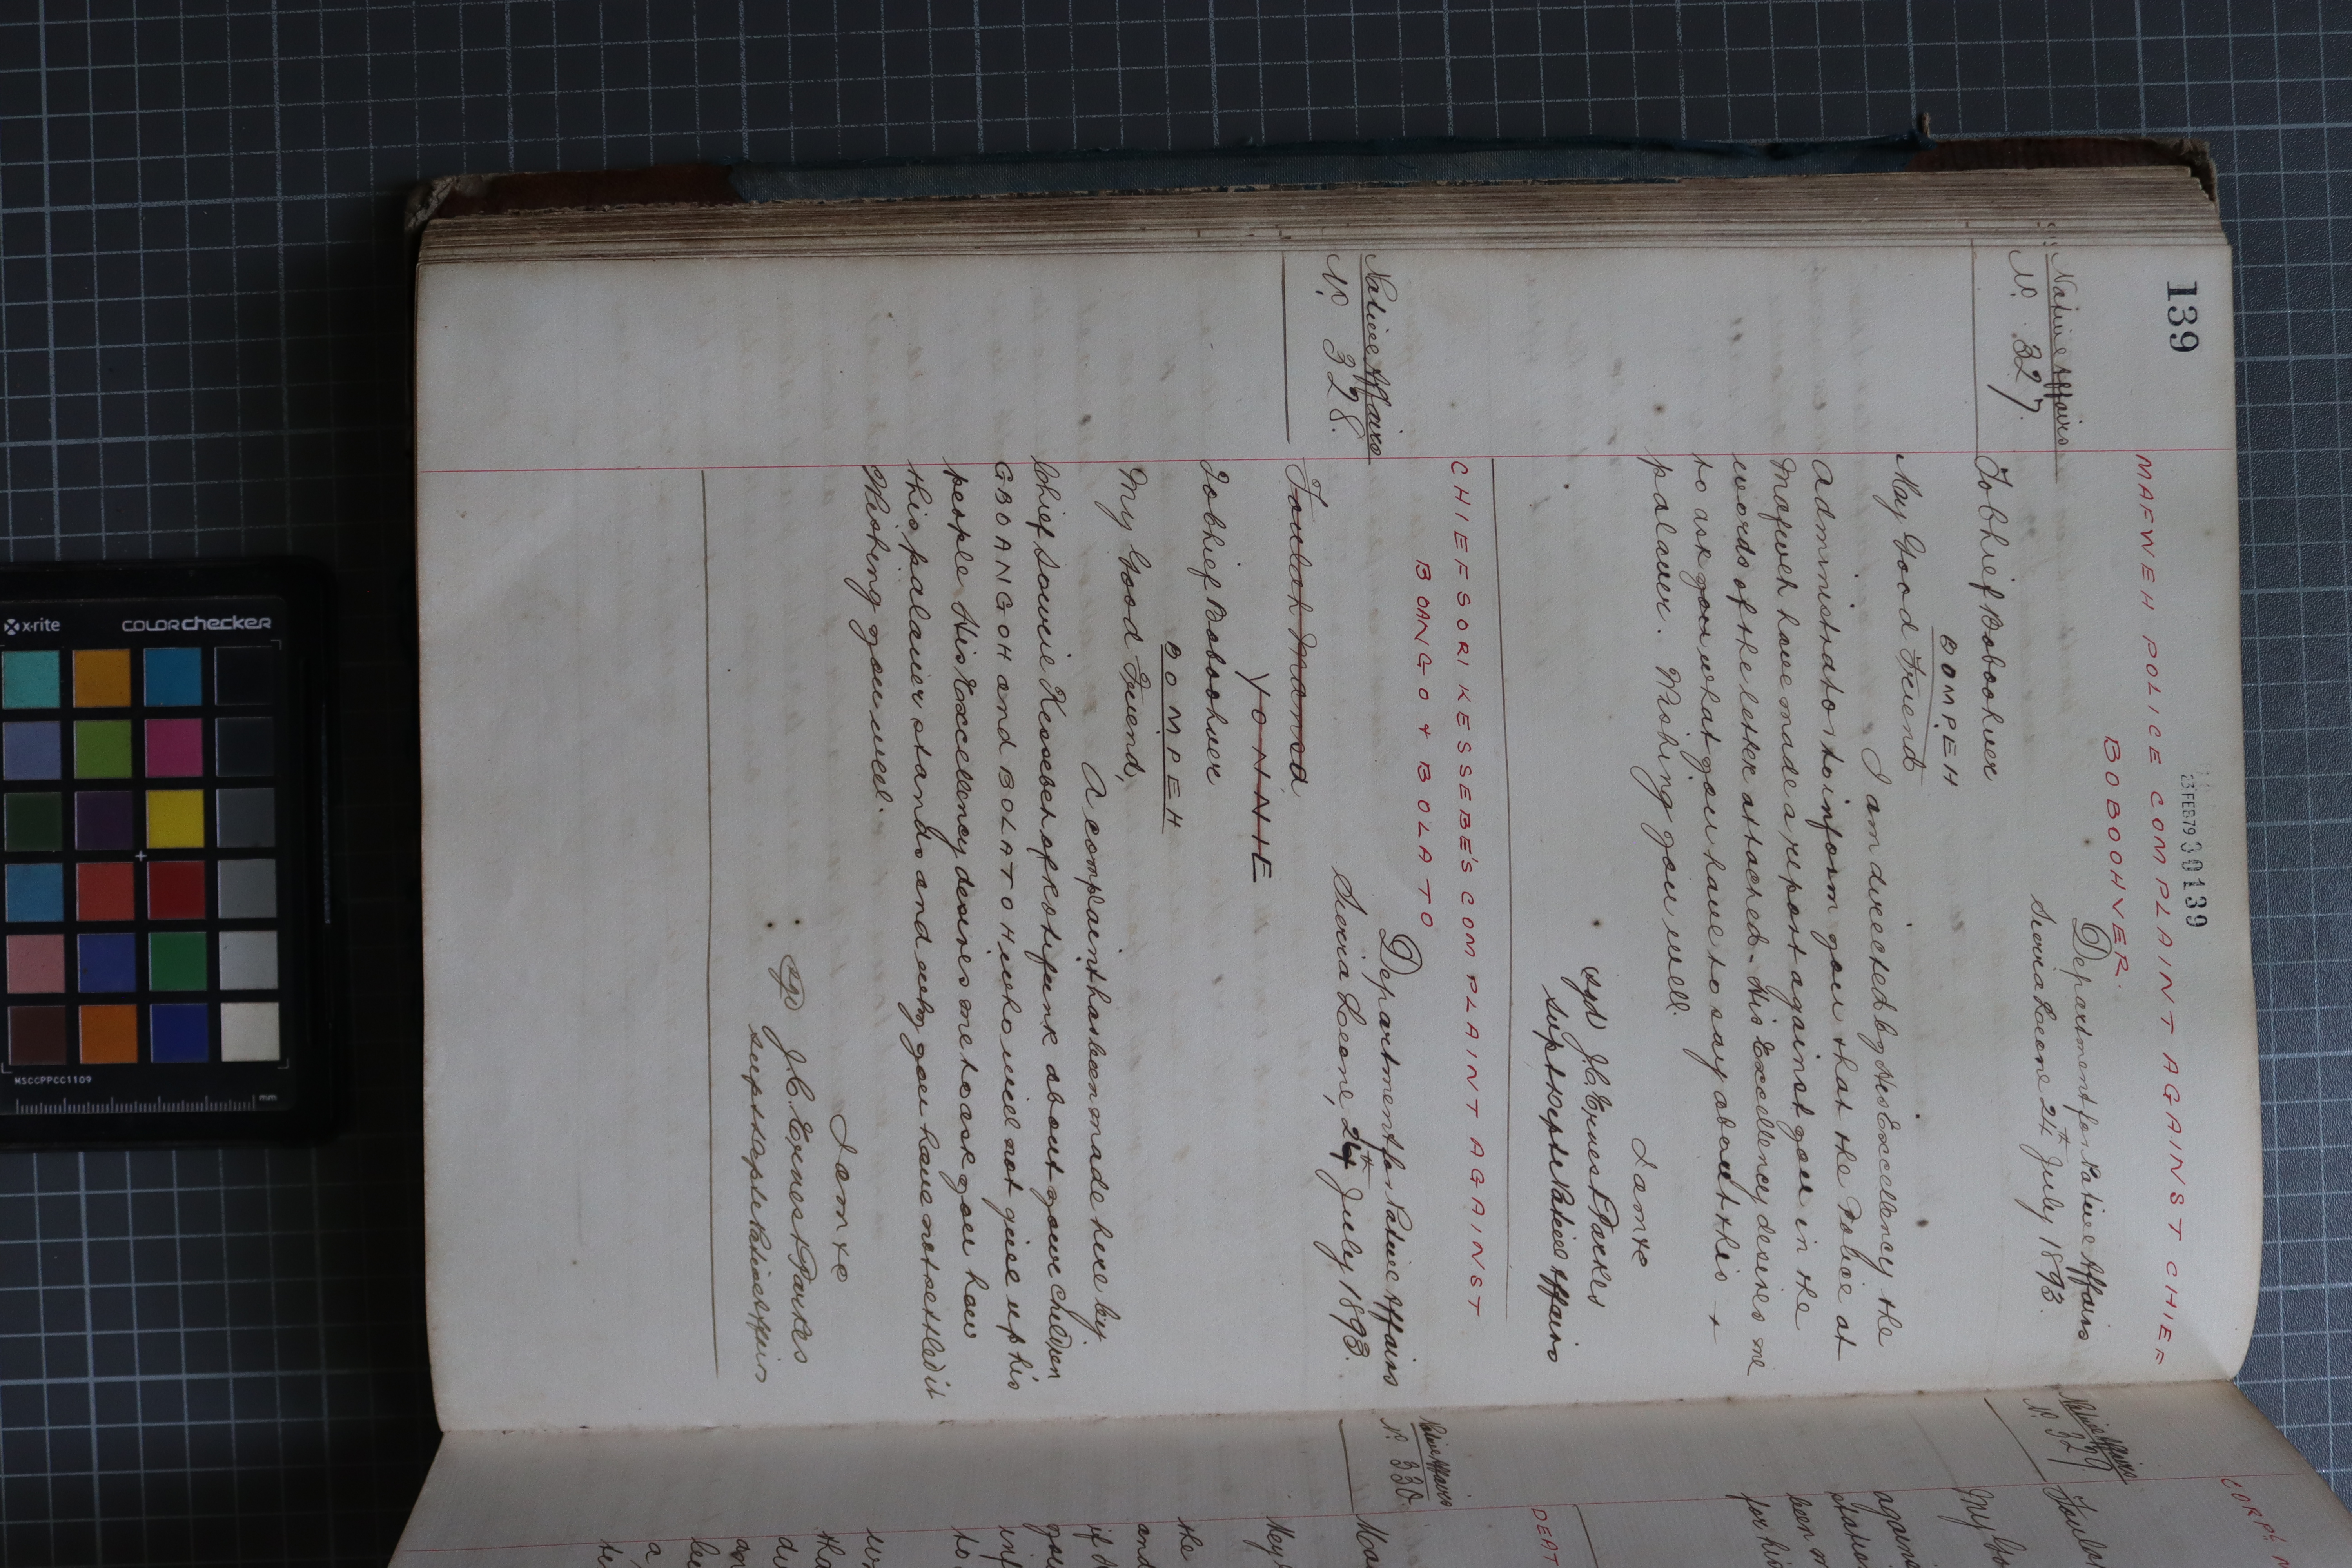 139
3 FEB 79 30139
MAFWEH POLICE COMPLAINT AGAINST CHIEF
BOBOOHVER
Native Affairs
No. 327.
Department for Native Affairs
Sierra Leone 24th July 1893.
To Chief Boboohver
BOMPEH
My Good Friend
I am directed by His Excellency the
Administrator to inform you that the Police at
Mafweh have made a report against you in the
words of the letter attached. His Excellency desires me
to ask you what you have to say about this +
palaver. Wishing you well.
I am &c
sgd J.C. Ernest Parkes
Supt Dept Native Affairs
CHIEF SORI KESSEBE'S COMPLAINT AGAINST
BOANGO & BOLATO
Native Affairs
No. 328.
Department for Native Affairs
Sierra Leone, 24th July 1893.
YONNIE
To Chief Boboohver
BOMPEH
My Good Friend,
A complaint has been made here by
Chief Sowrie Kessebeh of Rotifunk about your children
GBOANGOH and BOLATOH who will not give up his
people His Excellency desires me to ask you how
this palaver stands and why you have not settled it
Wishing you well.
I am &c
sgd J.C. Ernest Parkes
Supt Dept Native Affairs
Native Affairs
No. 329
My Go
agains
Station
been m
for his
DEAT
Native Affairs
No. 330.
the
and
to
a
x-rite
COLORchecker
MSCCPPCC1109
mm